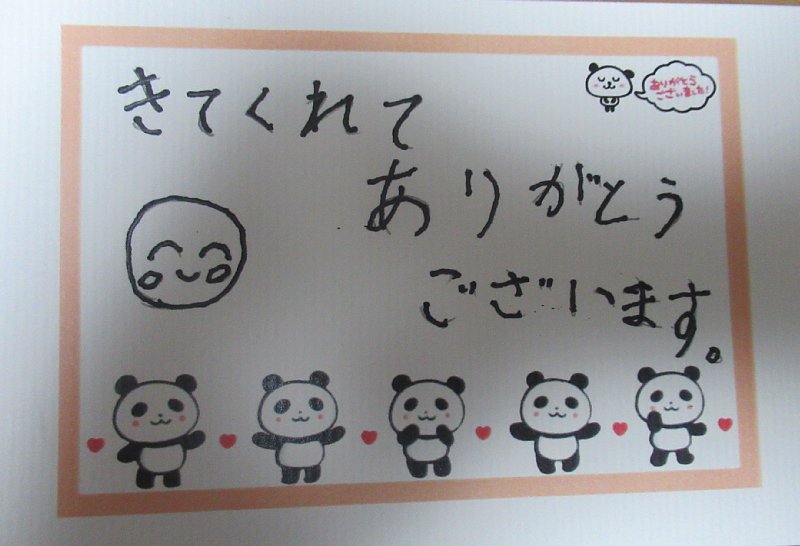 きてくれて
ありがとう
ございます。
ありがとう
ございました!